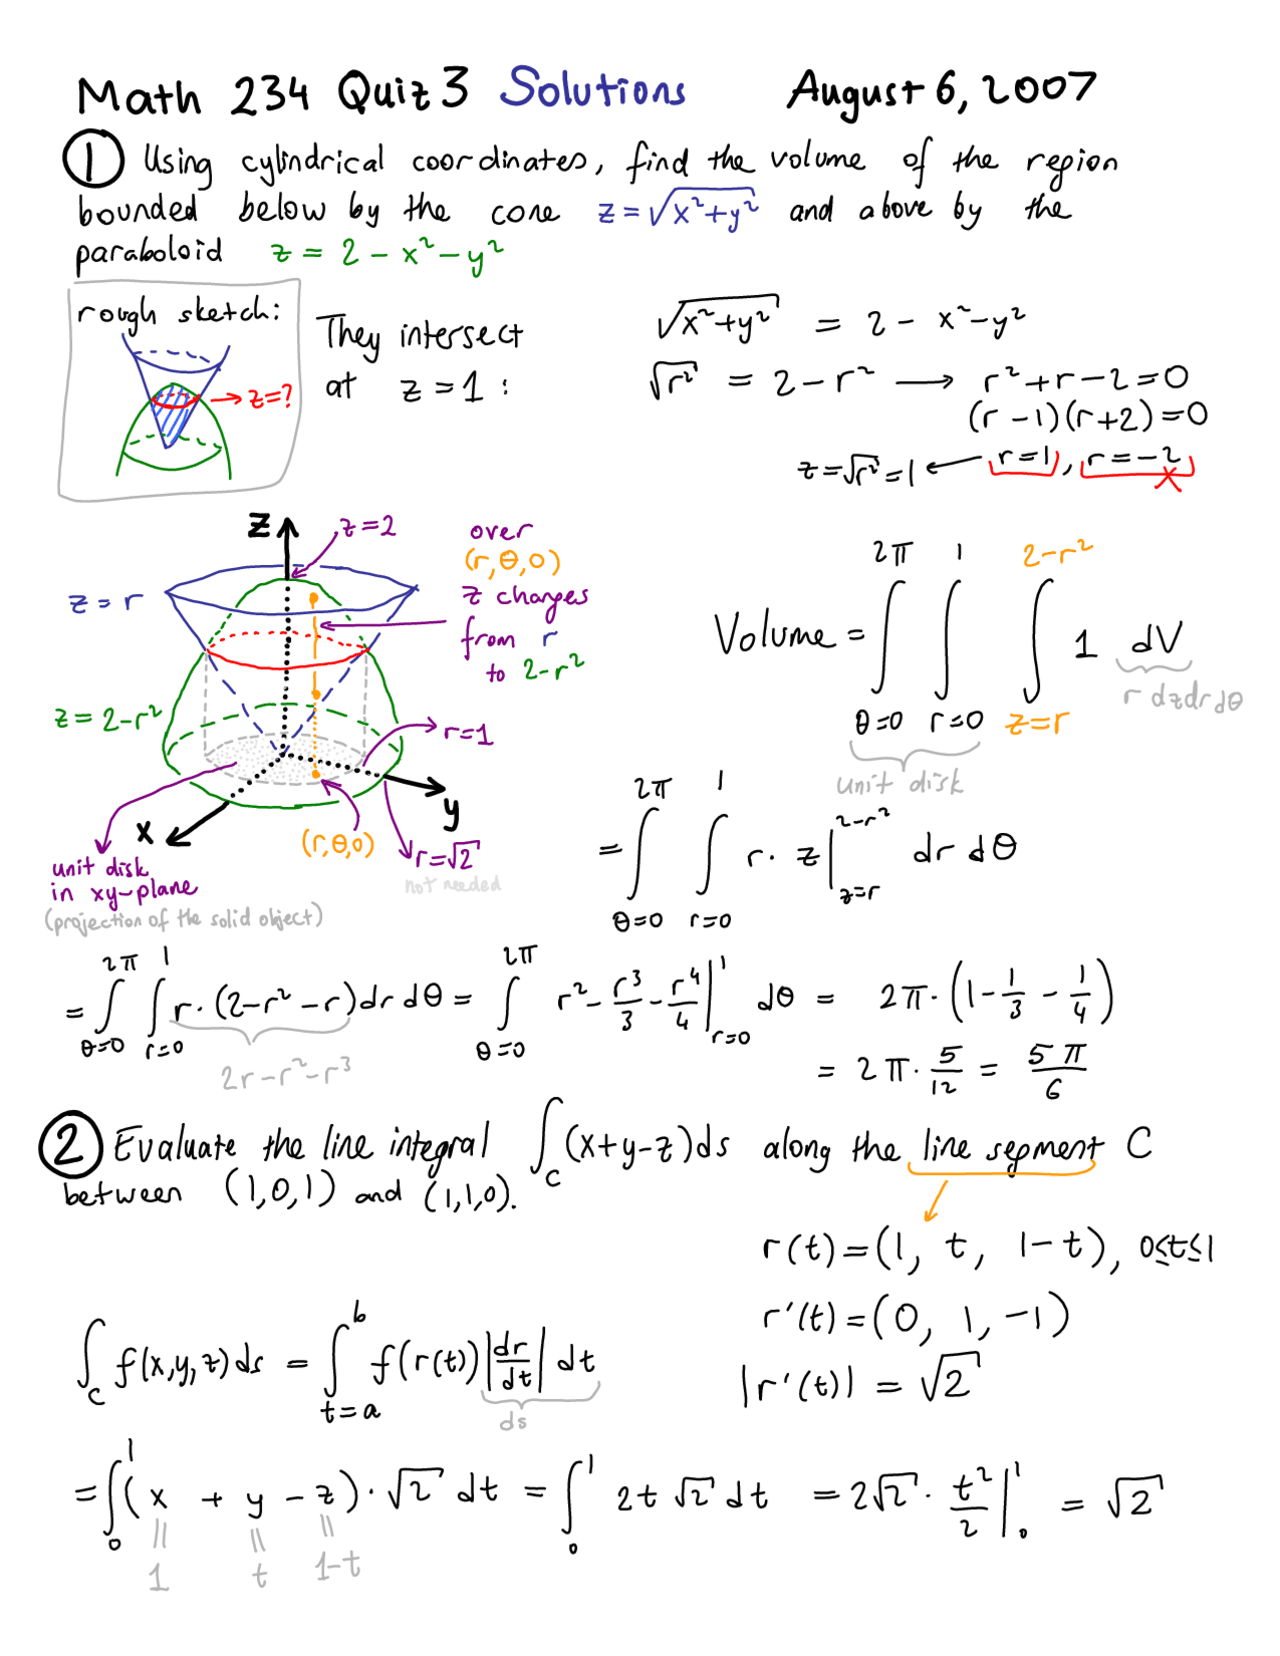 Math 234 Quiz 3 Solutions August 6, 2007
① Using cylindrical coordinates, find the volume of the region
bounded below by the cone z = √(x²+y²) and above by the
paraboloid z = 2 - x² - y²
rough sketch:
→ z=?
They intersect
at z = 1 :
√(x²+y²) = 2 - x² - y²
√r² = 2 - r² → r² + r - 2 = 0
(r - 1)(r + 2) = 0
z = √r² = 1 ← r = 1, r = -2
×
z
z = 2
z = r
z = 2 - r²
over
(r, θ, 0)
z changes
from r
to 2 - r²
r = 1
y
x
(r, θ, 0)
r = √2
not needed
unit disk
in xy-plane
(projection of the solid object)
Volume = ∫_{θ=0}^{2π} ∫_{r=0}^{1} ∫_{z=r}^{2-r²} 1 dV
r dz dr dθ
unit disk
= ∫_{θ=0}^{2π} ∫_{r=0}^{1} r · z |_{z=r}^{2-r²} dr dθ
= ∫_{θ=0}^{2π} ∫_{r=0}^{1} r · (2 - r² - r) dr dθ = ∫_{θ=0}^{2π} r² - r³/3 - r⁴/4 |_{r=0}^{1} dθ = 2π · (1 - 1/3 - 1/4)
2r - r² - r³
= 2π · 5/12 = 5π/6
② Evaluate the line integral ∫_C (x+y-z) ds along the line segment C
between (1,0,1) and (1,1,0).
r(t) = (1, t, 1-t), 0≤t≤1
r'(t) = (0, 1, -1)
|r'(t)| = √2
∫_C f(x,y,z) ds = ∫_{t=a}^{b} f(r(t)) |dr/dt| dt
ds
= ∫_0^1 (x + y - z) · √2 dt = ∫_0^1 2t √2 dt = 2√2 · t²/2 |_0^1 = √2
= = =
1 t 1-t